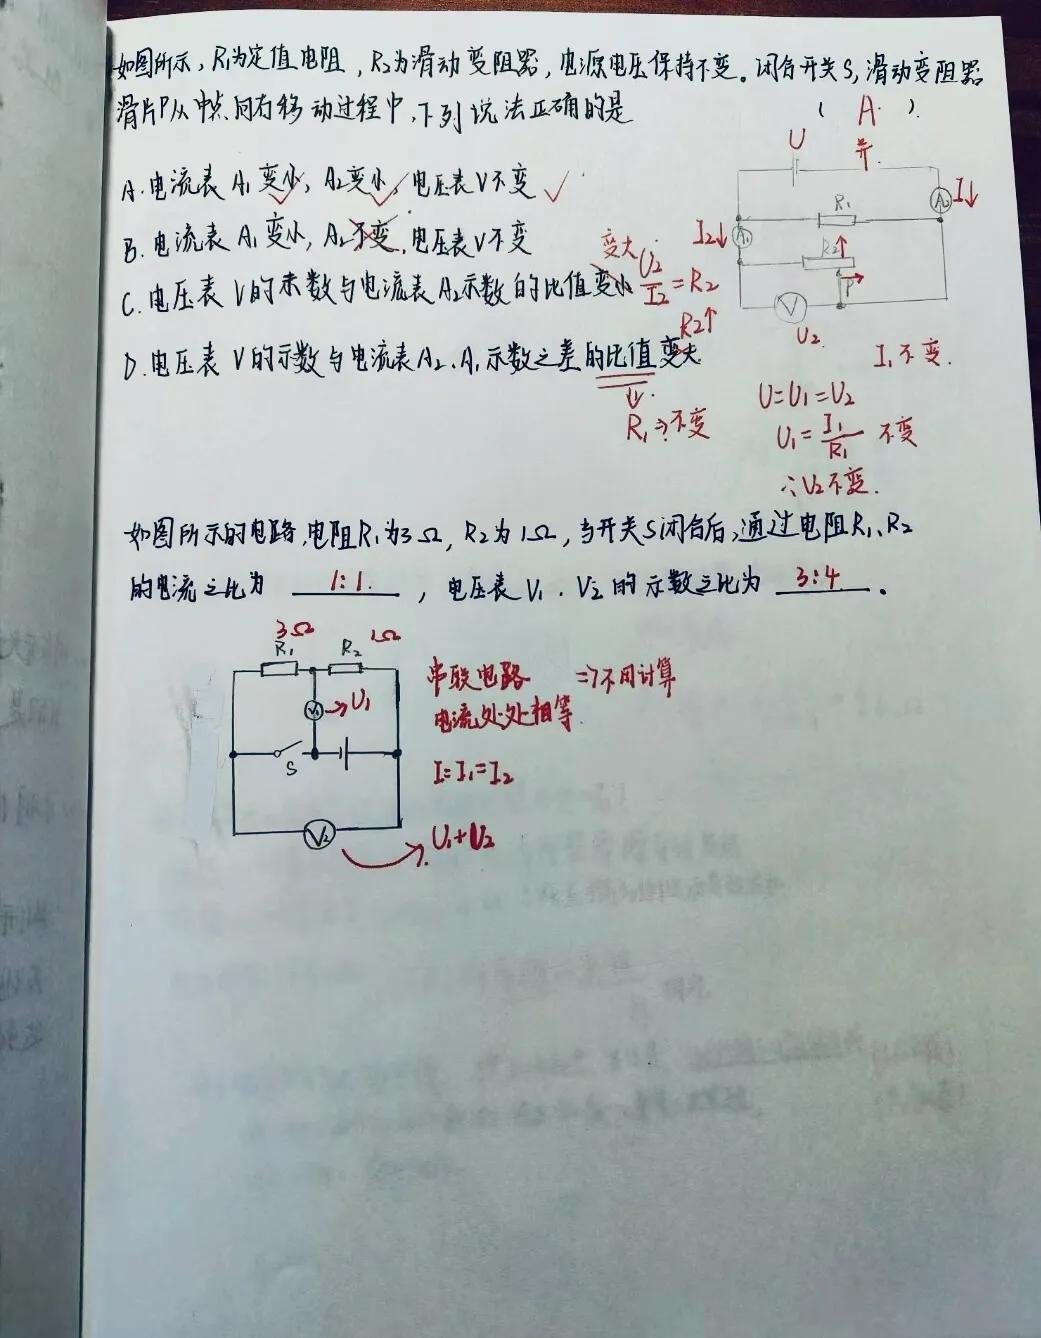 如图所示，R₁为定值电阻，R₂为滑动变阻器，电源电压保持不变。闭合开关S，滑动变阻器
滑片P从中点向右移动过程中，下列说法正确的是 （ A. ）.
A.电流表A₁变小，A₂变小，电压表V不变 ✓
B.电流表A₁变小，A₂不变，电压表V不变
C.电压表V的示数与电流表A₂示数的比值变小
D.电压表V的示数与电流表A₂、A₁示数之差的比值变大
变大
U₂/I₂=R₂
R₂↑
R₁→不变
U
并.
I↓
A₂
R₁
I₂↓
A₁
R₂↑
P
V
U₂
I₁不变.
U=U₁=U₂
U₁=I₁/R₁ 不变
∴U₂不变.
如图所示的电路，电阻R₁为3Ω，R₂为1Ω，当开关S闭合后，通过电阻R₁、R₂
的电流之比为 1:1. ，电压表V₁、V₂的示数之比为 3:4 。
3Ω
1Ω
R₁
R₂
V₁
→U₁
S
V₂
串联电路 ⇒不用计算
电流处处相等.
I=I₁=I₂
U₁+U₂